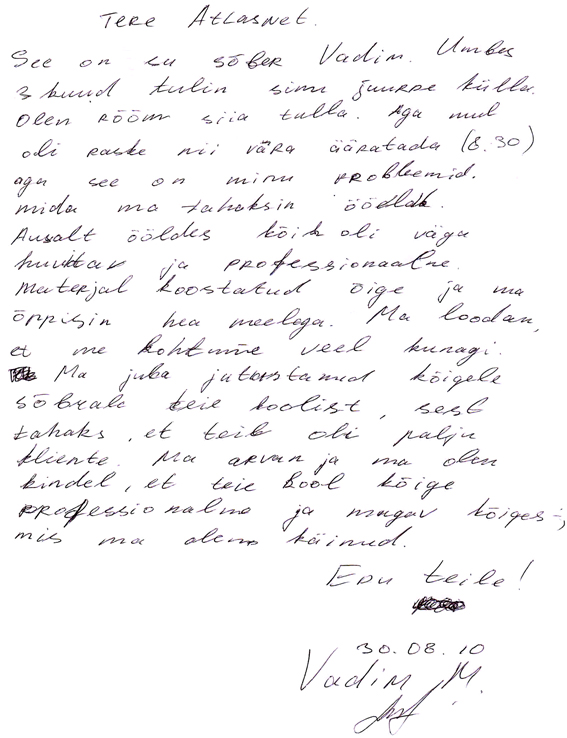 Tere Atlasnet.
See on su sõber Vadim. Umbes
3 kuud tulin sinu juurde külla.
Olen rõõm siia tulla. Aga mul
oli raske nii vära ääratada (8.30)
aga see on minu probleemid.
mida ma tahaksin öölda.
Ausalt ööldes kõik oli väga
huvitav ja professionaalne.
Materjal koostatud õige ja ma
õppisin hea meelega. Ma loodan,
et me kohtume veel kunagi.
Ma juba jutustanud kõigele
sõbrale teie koolist, sest
tahaks, et teil oli palju
kliente. Ma arvan ja ma olen
kindel, et teie kool kõige
professionalne ja mugav kõiges-,
mis ma olen käinud.
Edu teile!
30.08.10
Vadim M.